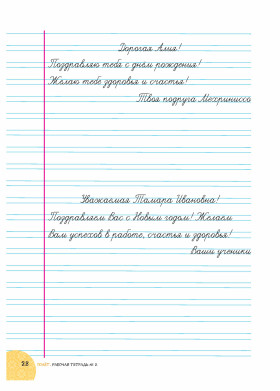 Дорогая Алия!
Поздравляю тебя с днём рождения!
Желаю тебе здоровья и счастья!
Твоя подруга Мехриниссо
Уважаемая Тамара Ивановна!
Поздравляем Вас с Новым годом! Желаем
Вам успехов в работе, счастья и здоровья!
Ваши ученики
28 РАБОЧАЯ ТЕТРАДЬ № 2